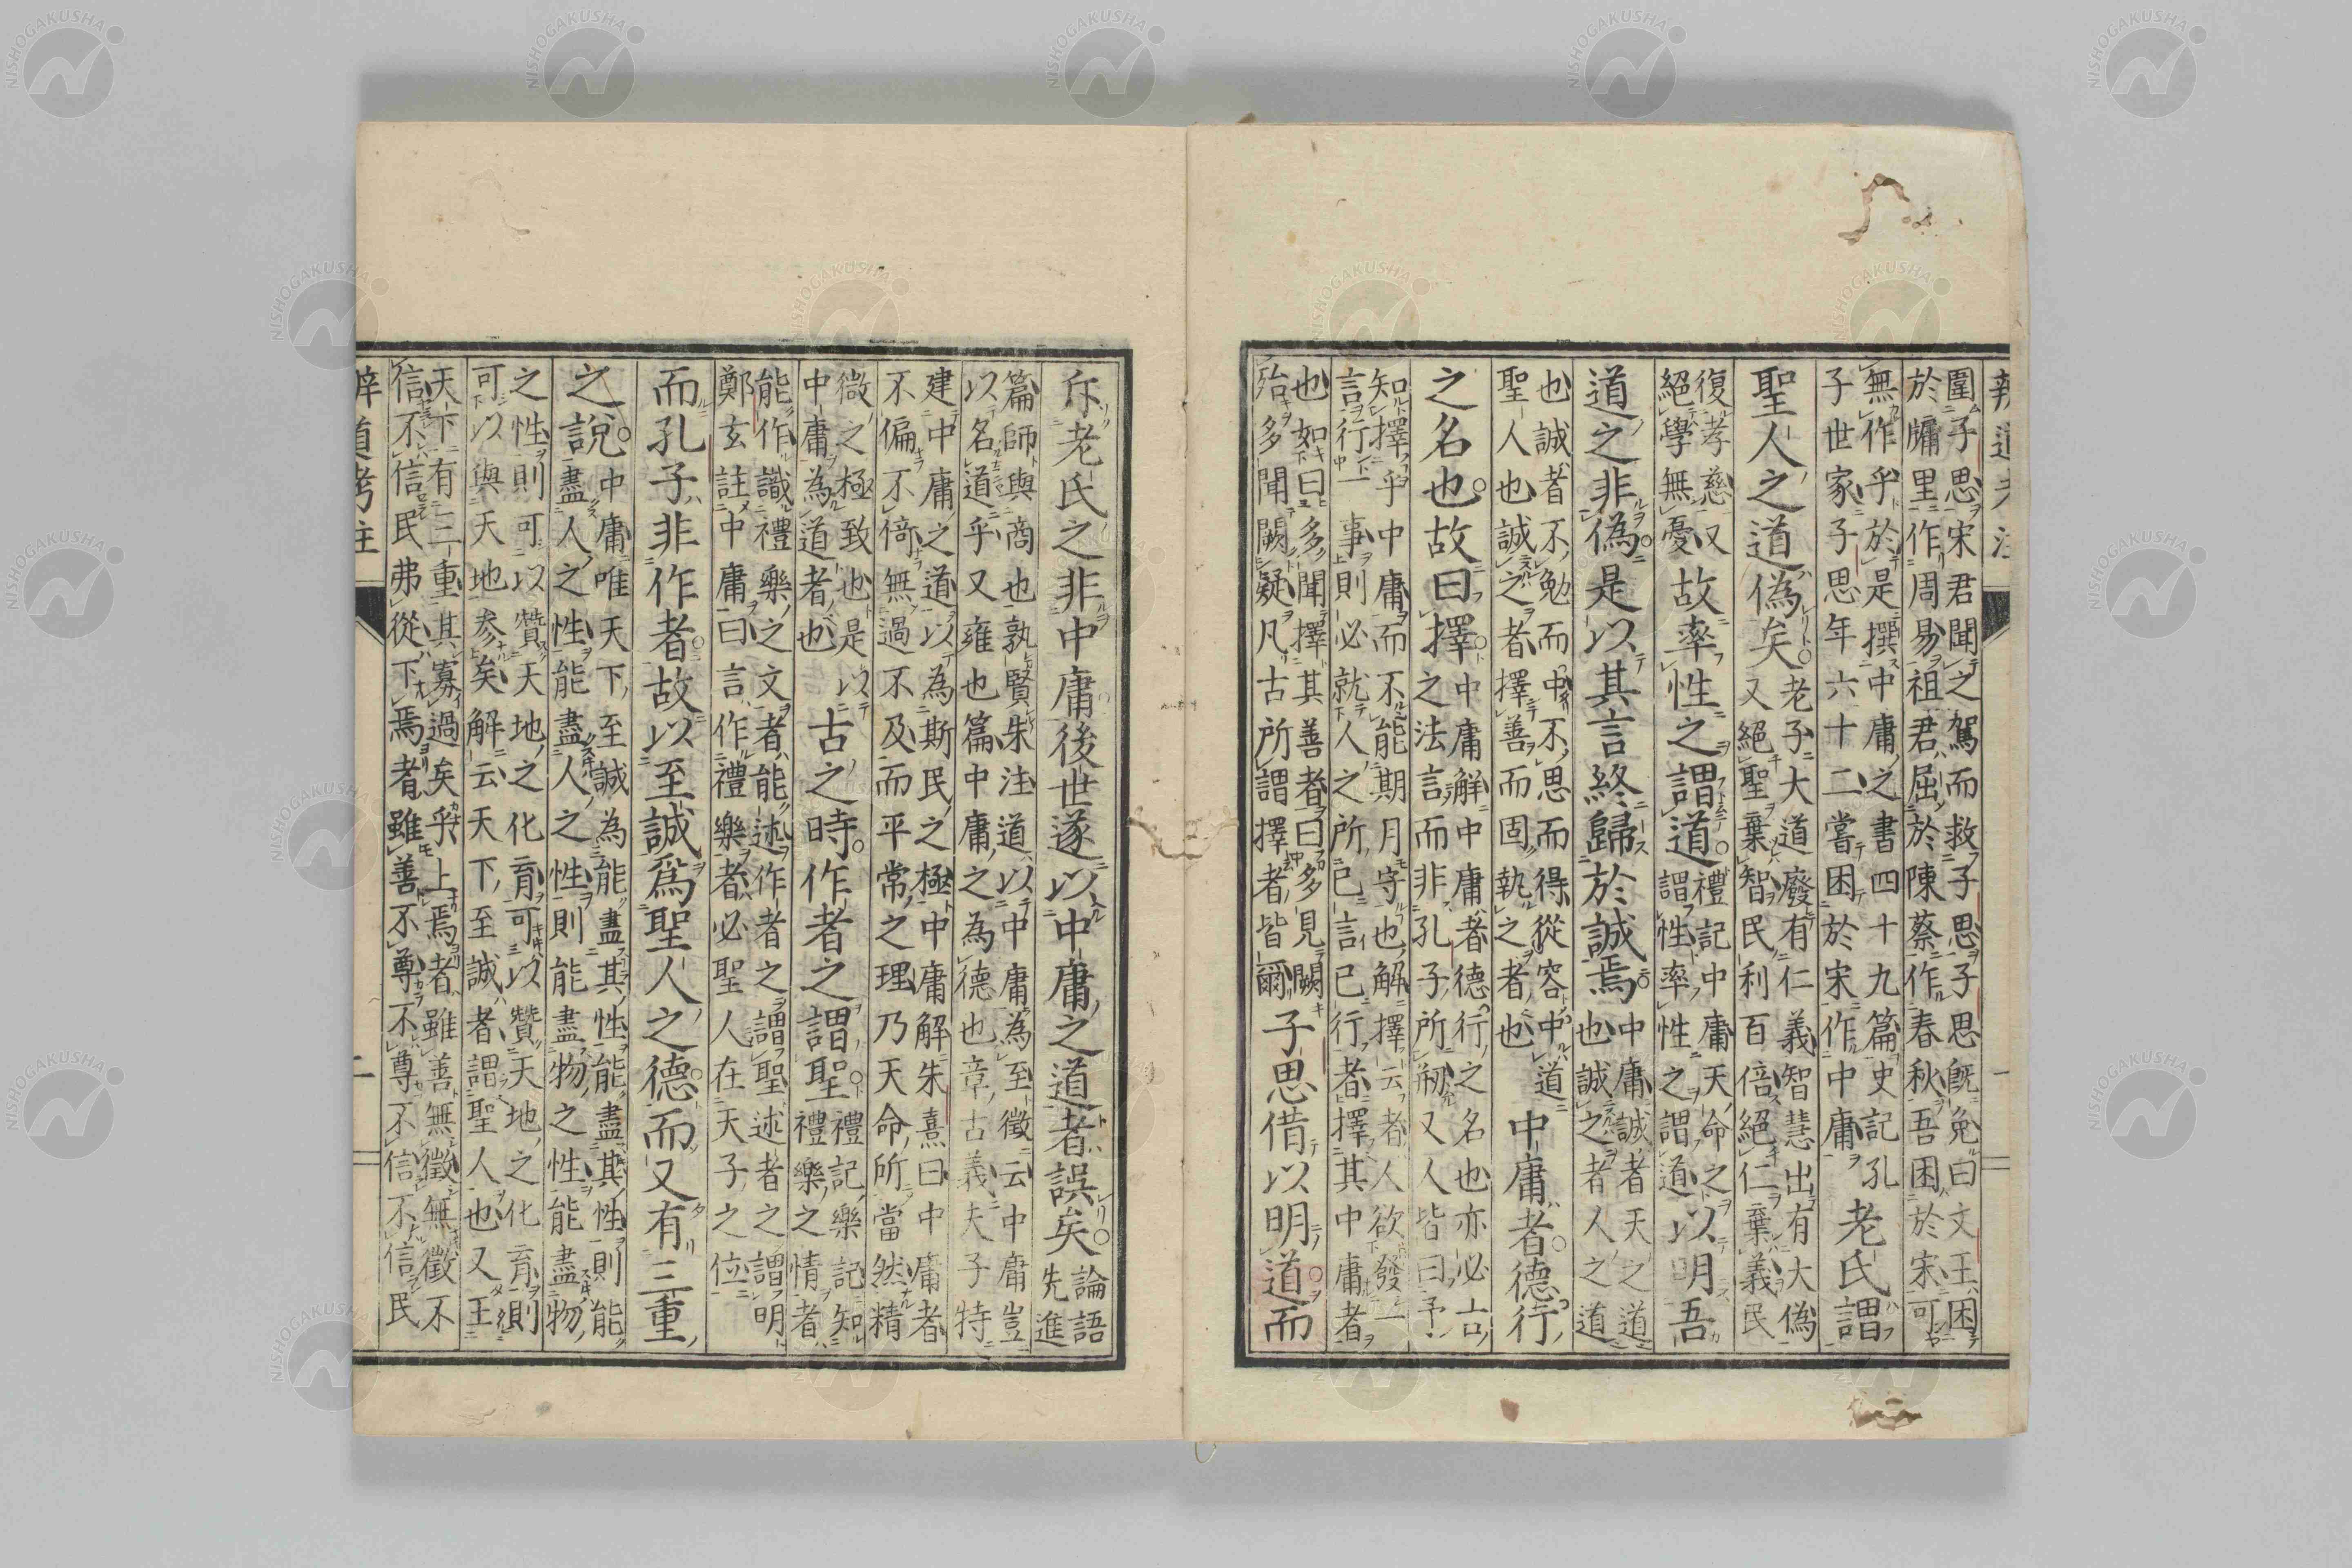 圍子思宋君聞之駕而救子思子思既免曰文王困
於牖里作周易祖君屈於陳蔡作春秋吾困於宋可
無作乎於是撰中庸之書四十九篇史記孔
子世家子思年六十二嘗困於宋作中庸
老氏謂
聖人之道偽矣
老子大道廢有仁義智慧出有大偽
又絕聖棄智民利百倍絕仁棄義民
復孝慈又
絕學無憂
故率性之謂道
禮記中庸天命之
謂性率性之謂道
以明吾
道之非偽是以其言終歸於誠焉
中庸誠者天之道
也誠之者人之道
也誠者不勉而中不思而得從容中道
聖人也誠之者擇善而固執之者也
中庸者德行
之名也故曰擇
中庸解中庸者德行之名也亦必古
之法言而非孔子所剏又人皆曰予
知擇乎中庸而不能期月守也解擇云者人欲發
言行一事則必就人之所已言已行者擇其中庸者
也如曰多聞擇其善者曰多見闕
殆多聞闕疑凡古所謂擇者皆爾
子思借以明道而
斥老氏之非中庸後世遂以中庸之道者誤矣
論語
先進
篇師與商也孰賢朱注道以中庸為至徵云中庸豈
以名道乎又雍也篇中庸之為德也章古義夫子特
建中庸之道以為斯民之極中庸解朱熹曰中庸者
不偏不倚無過不及而平常之理乃天命所當然精
微之極致也是以
中庸為道者也
古之時作者之謂聖
禮記樂記知
禮樂之情者
能作識禮樂之文者能述作者之謂聖述者之謂明
鄭玄註中庸曰言作禮樂者必聖人在天子之位
而孔子非作者故以至誠爲聖人之德而又有三重
之說
中庸唯天下至誠為能盡其性能盡其性則能
盡人之性能盡人之性則能盡物之性能盡物
之性則可以贊天地之化育可以贊天地之化育則
可以與天地參矣解云天下至誠者謂聖人也又王
天下有三重其寡過矣乎上焉者雖善無徵無徵不
信不信民弗從下焉者雖善不尊不尊不信不信民
辨道考註
二